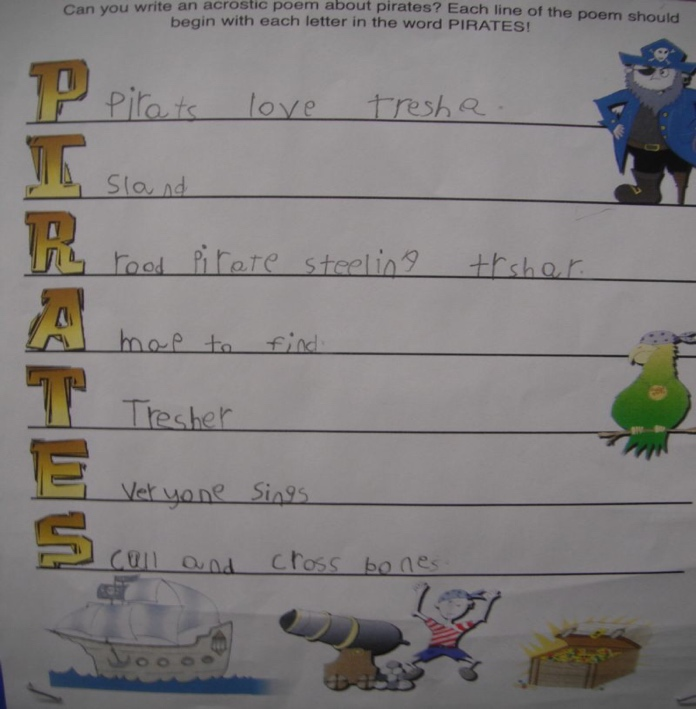 Can you write an acrostic poem about pirates? Each line of the poem should
begin with each letter in the word PIRATES!
P Pirats love tresha.
I sland
R rood pirate steeling trshar.
A map to find.
T Tresher
E veryone sings
S cull and cross bones.